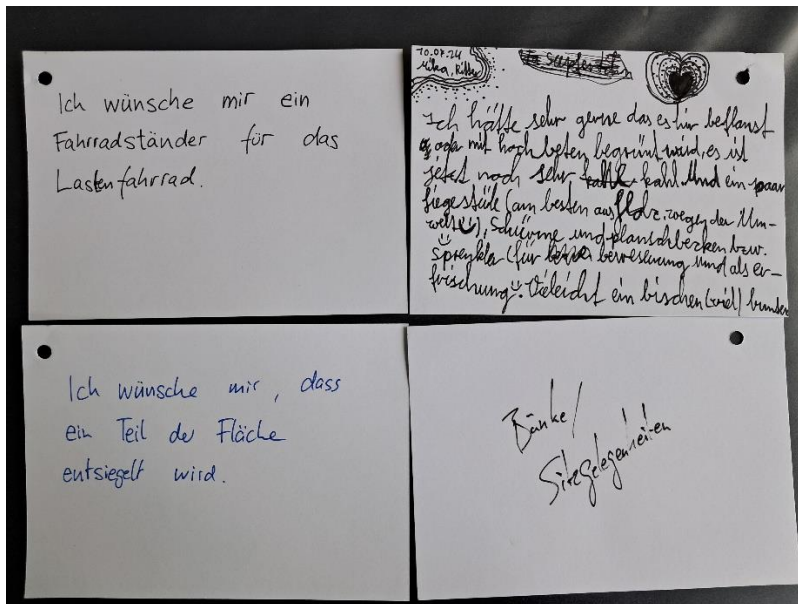 Ich wünsche mir ein
Fahrradständer für das
Lastenfahrrad.
10.07.24
Mika,
Ich hätte sehr gerne das es hir beflanst
oder mit hochbeten begrünt wird, es ist
jetzt noch sehr kahl. Und ein paar
liegestüle (am besten aus Holz, wegen der Um-
welt), Schirme und planschbecken bzw.
Spreykler (für bewesewung und als er-
frischung. Vieleicht ein bischen (viel) bunter
Ich wünsche mir, dass
ein Teil der Fläche
entsiegelt wird.
Bänke/
Sitzgelegenheiten